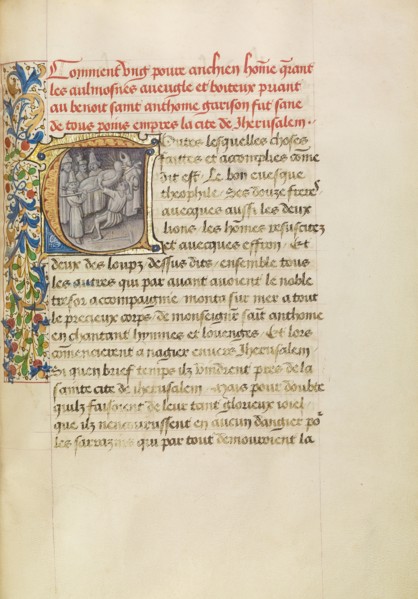 Comment vng poure anchien hom̄e q̄rant
les aulmosnes aueugle et boiteux priant
au benoit saint anthoine garison fut sane
de tous poins empres la cite de Jherusalem .
Toutes lesquelles choses
faittes et acomplies cōme
dit est / Le bon euesque
theophile / Ses douze freres
auecques aussi les deux
lions / les hōmes resuscitez
et auecques effron / Et
deux des loupz dessus dits / ensemble tous
les autres qui par auant auoient le noble
tresor accompaignie monta sur mer a tout
le precieux corps de monseignr̄ saīt anthoine
en chantant hymnes et louenges / Et lors
commencierent a nagier enuers Jherusalem
Si quen brief temps ilz vindrent pres de la
sainte cite de iherusalem / Mais pour doubte
quilz faisoient de leur tant glorieux ioiel /
que ilz nencourussent en aucun dangier po᷑
les sarrazins qui par tout demouroient la